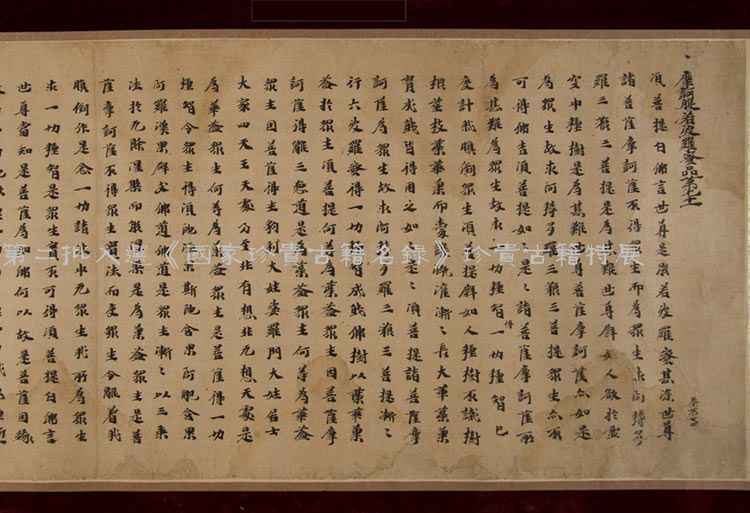 摩訶般若波羅蜜品第七十一
須菩提白佛言世尊是般若波羅蜜甚深世尊
諸菩薩摩訶薩不得眾生而為眾生求阿耨多
羅三藐三菩提是為甚難世尊譬如人欲於虛
空中種樹是為甚難世尊菩薩摩訶薩亦如是
為眾生故求阿耨多羅三藐三菩提眾生亦不
可得佛告須菩提如是〻諸菩薩摩訶薩所
為甚難為眾生故求一切種智得一切種智已
度計我顛倒眾生須菩提譬如人種樹不識樹
根莖枝葉華菓而愛護溉灌漸〻長大華葉菓
實成就皆得用之如是〻須菩提諸菩薩摩
訶薩為眾生故求阿耨多羅三藐三菩提漸〻
行六波羅蜜得一切種智成就佛樹以葉華菓
益於眾生須菩提何等為葉益眾生因菩薩摩
訶薩得離三惡道是為葉益眾生何等為華益
眾生因菩薩得生剎利大姓婆羅門大姓居士
大家四天王天處乃至非有想非无想天處是
為華益眾生何等為菓益眾生是菩薩得一切
種智令眾生得須陀洹果斯陀含果阿那含果
阿羅漢果辟支佛道佛道是眾生漸〻以三乘
法於无餘涅槃而般涅槃是為菓益眾生是菩
薩摩訶薩不得眾生實法而度眾生令離着我
顛倒作是念一切諸法中无眾生我所為眾生
求一切種智是眾生實不可得須菩提白佛言
世尊當知是菩薩為如佛何以故是菩薩因緣
第二批入選《國家珍貴古籍名錄》珍貴古籍特展